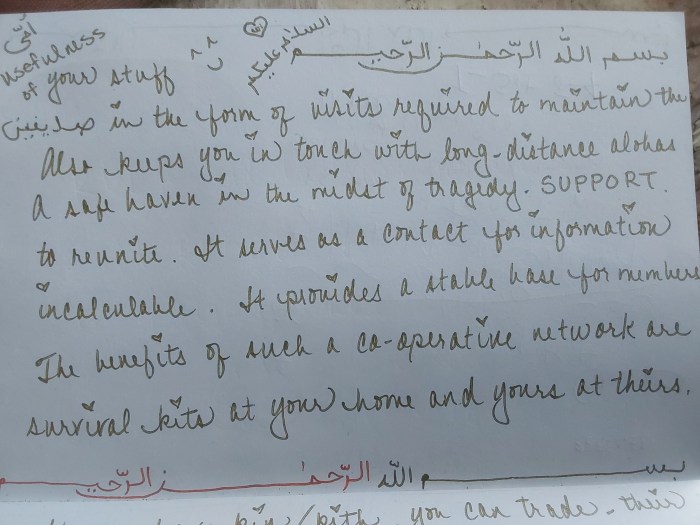 أمّي
بسم الله الرّحمٰن الرّحيم
السلام عليكم
usefulness
of your stuff
in the form of visits required to maintain the
Also keeps you in touch with long-distance alohas
A safe haven in the midst of tragedy. SUPPORT.
to reunite. It serves as a contact for information
incalculable. It provides a stable base for members
The benefits of such a co-operative network are
survival kits at your home and yours at theirs.
بسم الله الرّحمٰن الرّحيم
kin/kith you can trade - their